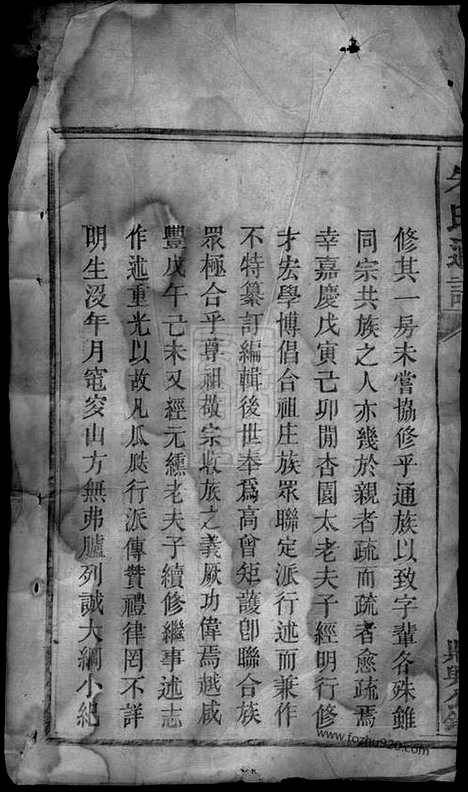 氏通譜
修其一房未嘗協修乎通族以致字輩各殊雖
同宗共族之人亦幾於親者疏而疏者愈疏焉
幸嘉慶戊寅己卯閒杏園太老夫子經明行修
才宏學博倡合祖庄族眾聯定派行述而兼作
不特纂訂編輯後世奉爲高曾矩護卽聯合族
眾極合乎尊祖敬宗收族之義厥功偉焉越咸
豐戊午己未又經元纁老夫子續修繼事述志
作述重光以故凡瓜瓞行派傳贊禮律罔不詳
明生沒年月窀穸山方無弗臚列誠大綱小紀
www.fozhu920.com